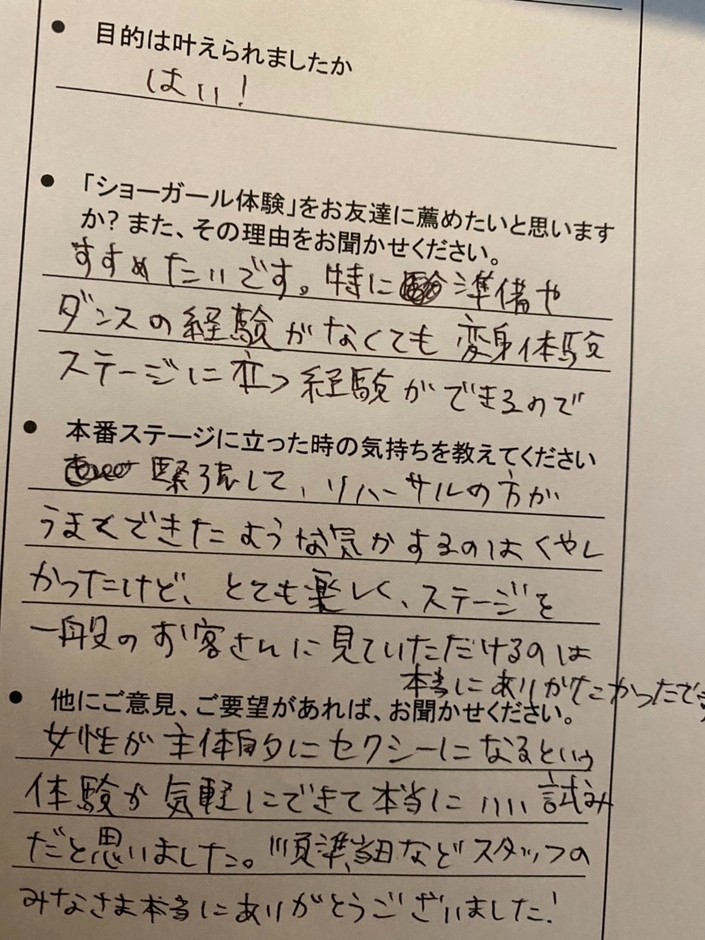 ● 目的は叶えられましたか
はい!
● 「ショーガール体験」をお友達に薦めたいと思います
か? また、その理由をお聞かせください。
すすめたいです。特に準備や
ダンスの経験がなくても変身体験
ステージに立つ経験ができるので
● 本番ステージに立った時の気持ちを教えてください
緊張して、リハーサルの方が
うまくできたような気がするのはくやし
かったけど、とても楽しく、ステージを
一般のお客さんに見ていただけるのは
本当にありがたかったです
● 他にご意見、ご要望があれば、お聞かせください。
女性が主体的にセクシーになるという
体験が気軽にできて本当にいい試み
だと思いました。準当日などスタッフの
みなさま本当にありがとうございました!